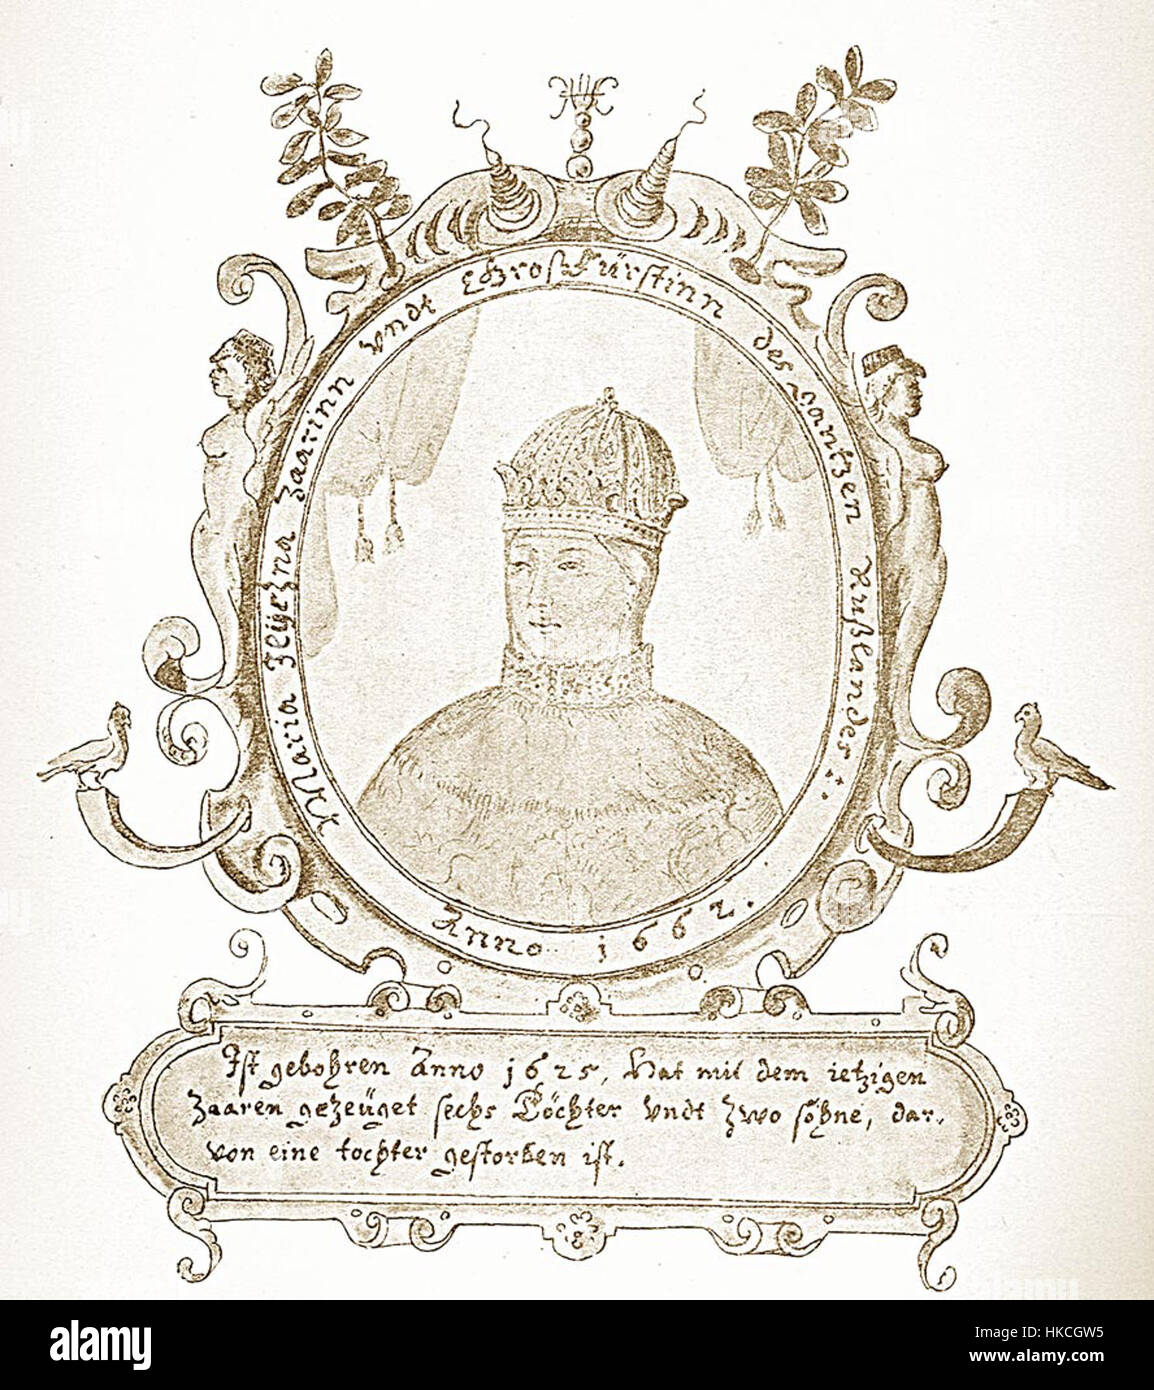 Maria Iliyezna Zaarinn vndt GrosFürstinn des gantzen Rußlandes
Anno 1662.
Ist gebohren Anno 1625, Hat mit dem ietzigen
Zaaren gezeüget sechs Töchter vndt zwo söhne, dar.
von eine tochter gestorben ist.
alamy
Image ID: HKCGW5
www.alamy.com